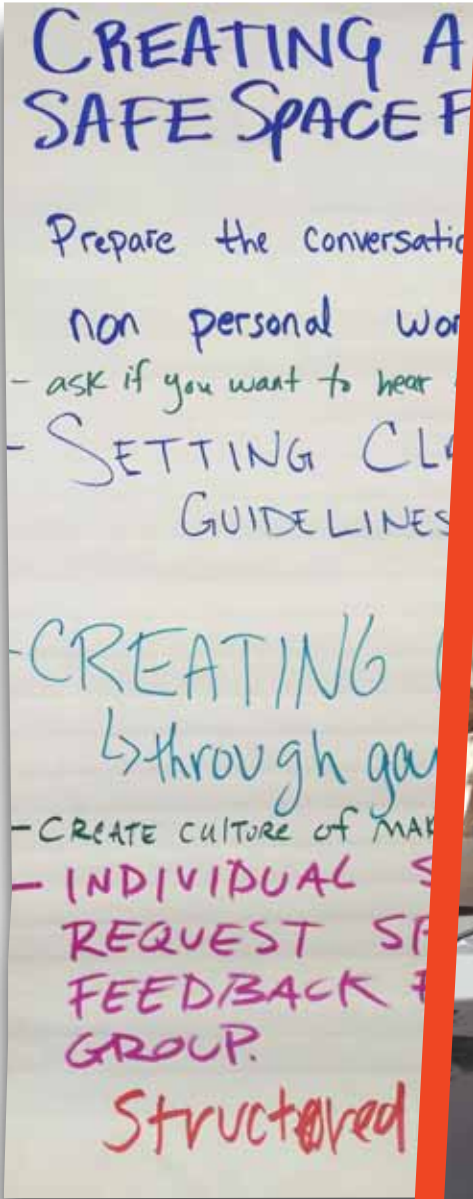 CREATING A
SAFE SPACE F
Prepare the conversatio
non personal wor
- ask if you want to hear
- SETTING CLA
GUIDELINES
- CREATING
↳ through gam
- CREATE CULTURE of MAK
- INDIVIDUAL S
REQUEST SP
FEEDBACK F
GROUP.
Structured